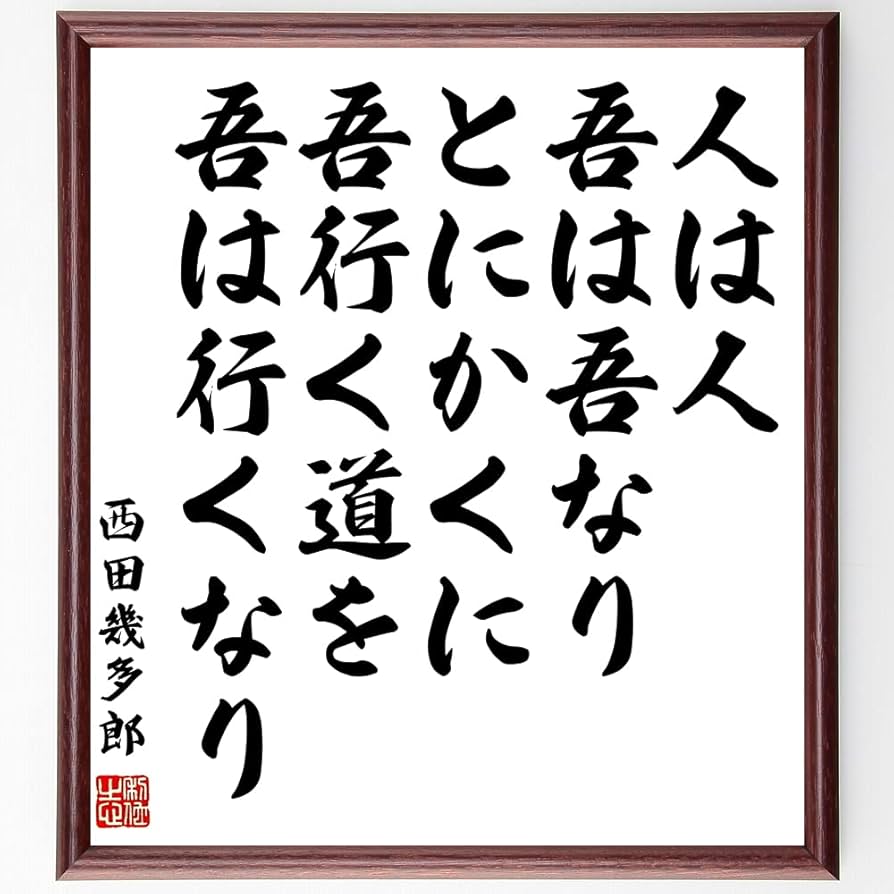 人は人
吾は吾なり
とにかくに
吾行く道を
吾は行くなり
西田幾多郎